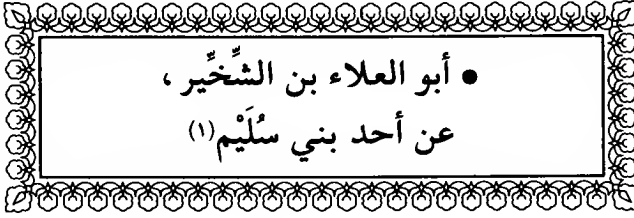 • أبو العلاء بن الشِّخِّير ،
عن أحد بني سُلَيْم(١)